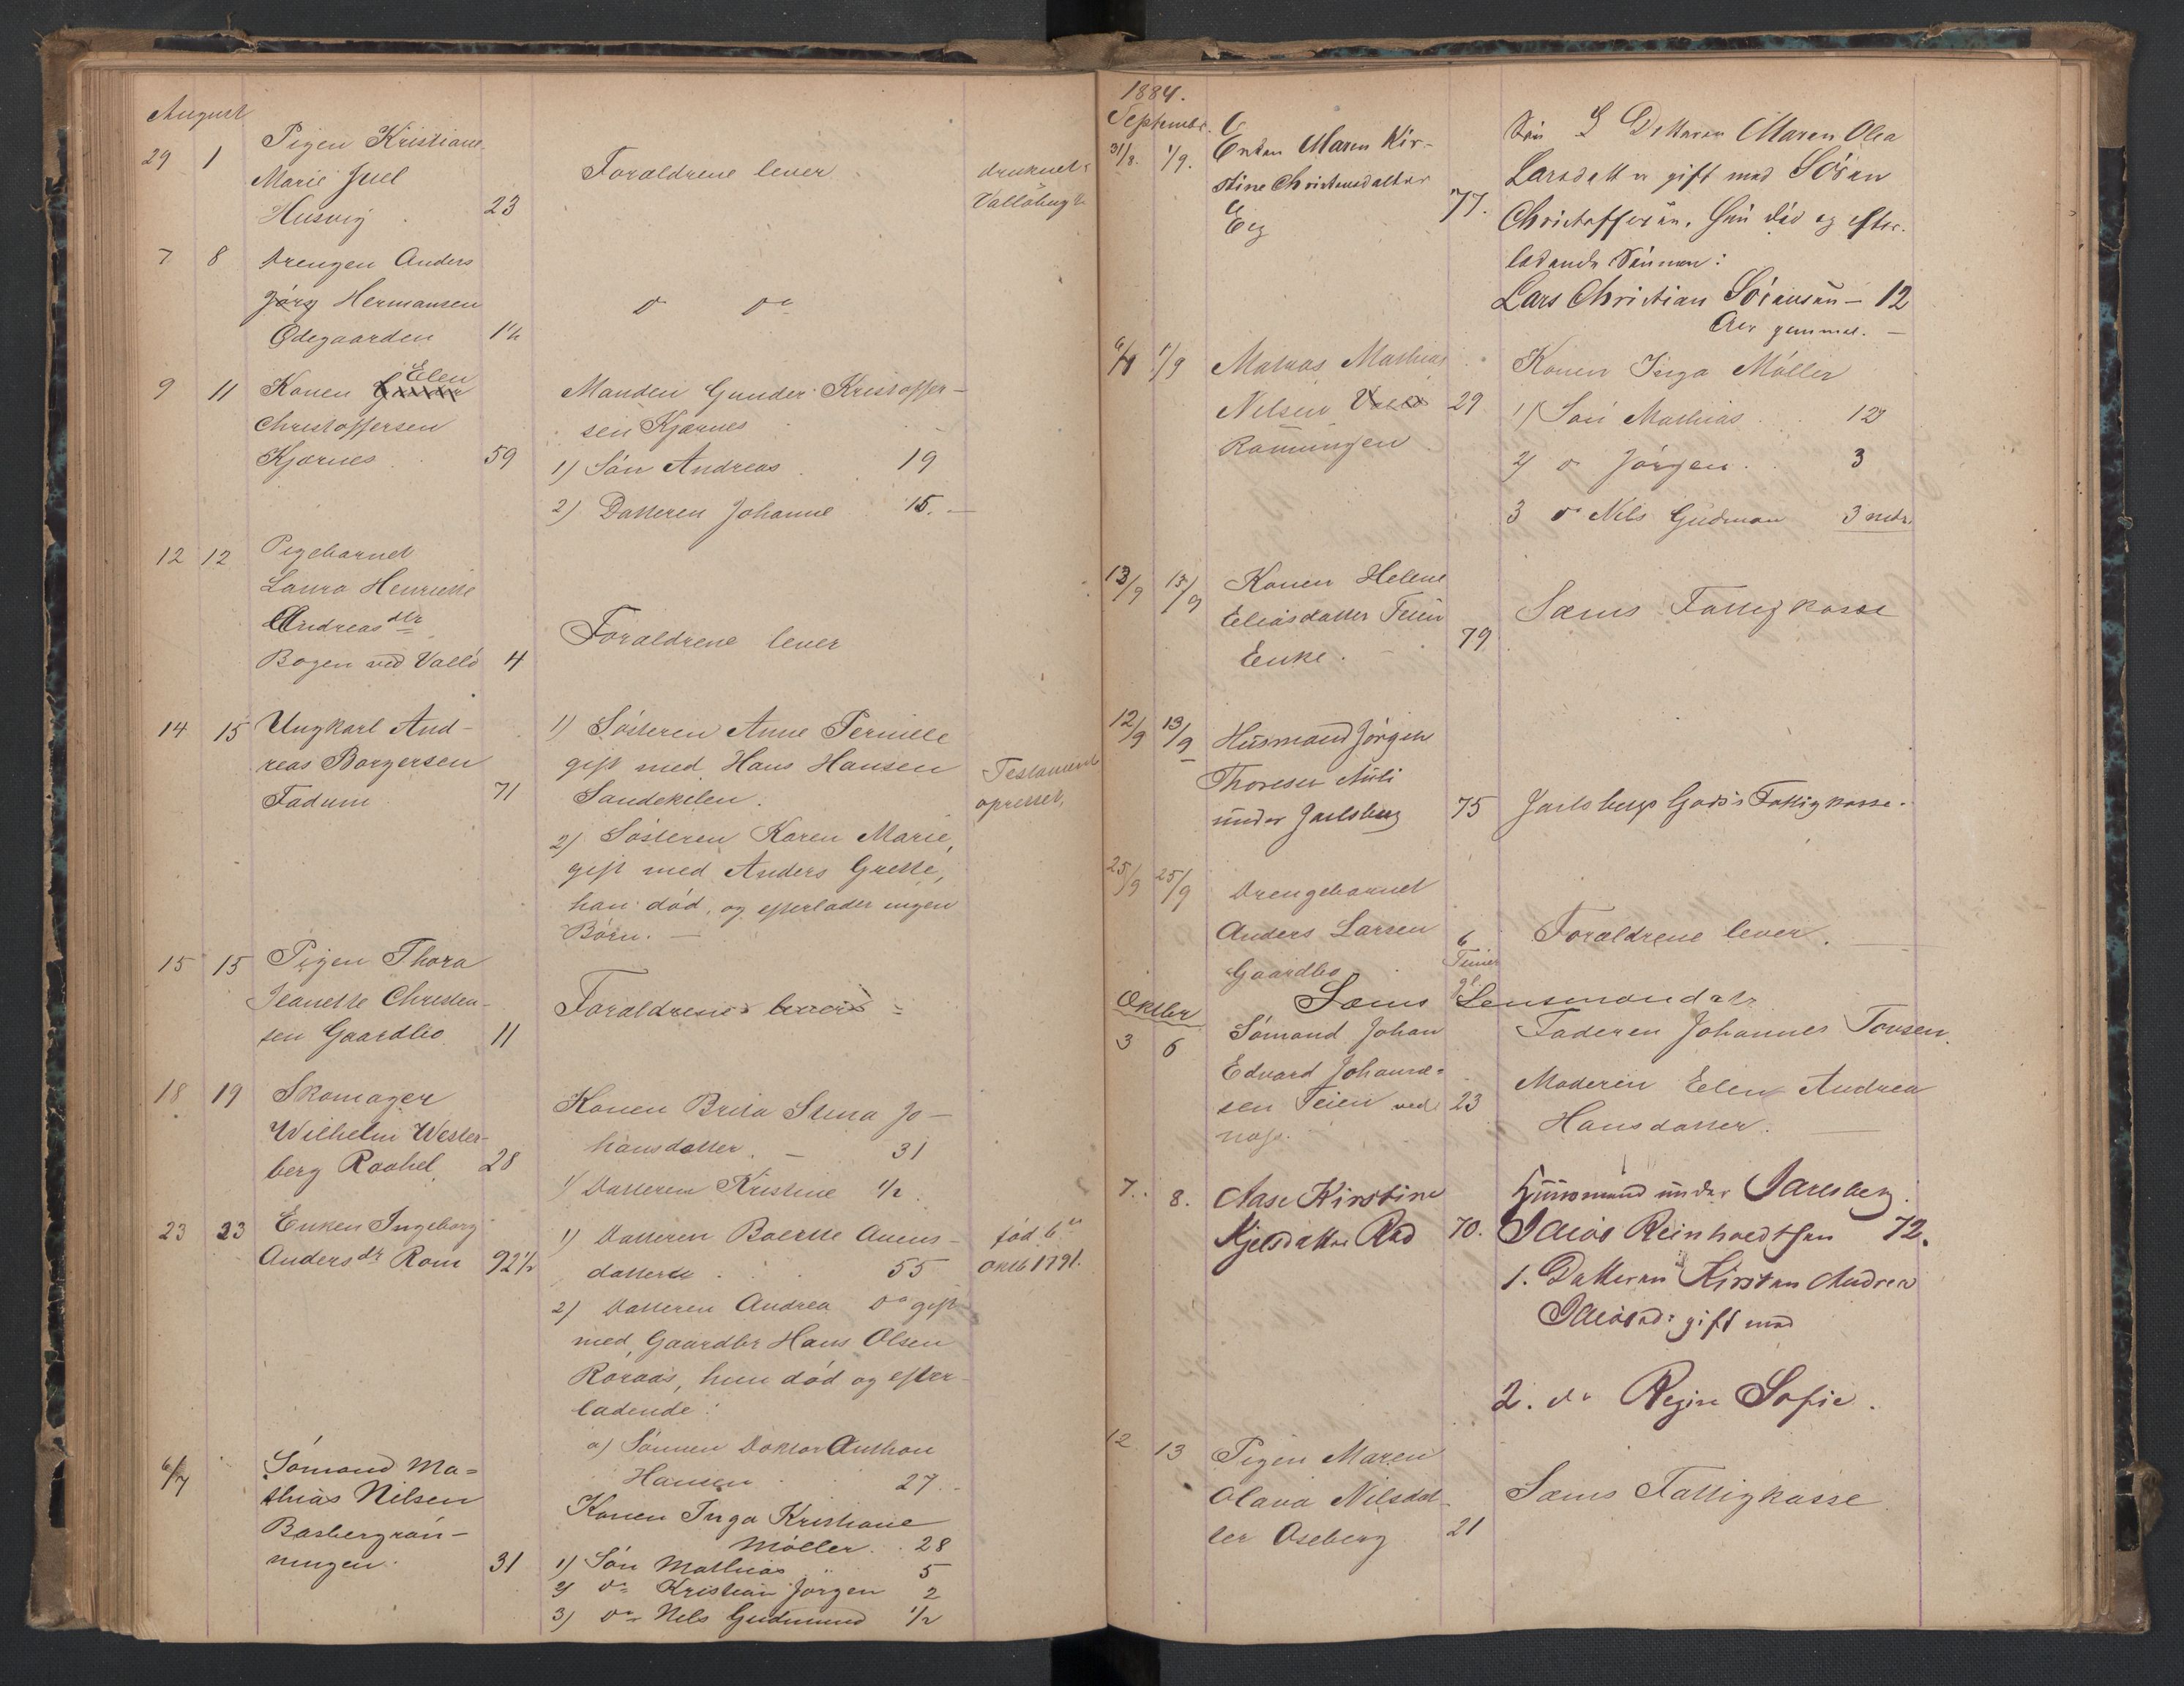 August
29 1 Pigen Kristiane
Marie Juel
Husvig 23
Forældrene lever
druknet
7 8 Drengen Anders
Jörg Hermansen
Ödegaarden 1½
do do
9 11 Konen Elen
Christoffersen
Kjærnes 59
Manden Gunder Kristoffer-
sen Kjærnes
1) Sön Andreas 19
2) Datteren Johanne 15. —
12 12 Pigebarnet
Laura Henriette
Andreasdtr
Bogen ved Vallö 4
Forældrene lever
14 15 Ungkarl And-
reas Borgersen
Fadum 71
1) Sösteren Anne Pernille
gift med Hans Hansen
Sandekilen.
2) Sösteren Karen Marie,
gift med Anders Grette,
han död, og efterlader ingen
Börn. —
Testament
oprettet,
15 15 Pigen Thora
Jeanette Christen-
sen Gaardbo 11
Forældrene lever
18 19 Skomager
Wilhelm Wester-
berg Raahel 28
Konen Brita Stina Jo-
hansdatter. — 31
1) Datteren Kristine 1/2.
23 23 Enken Ingeborg
Andersdr Rom 92½
1) Datteren Boertte Auens-
datter 55
2) Datteren Andrea do gift
med Gaardbr Hans Olsen
Röraas, hun död og efter-
ladende:
a) Sönnen Doktor Anthon
Hansen 27.
föd 6te
Oktb 1791.
6/7 Sömand Ma=
thias Nilsen
Basbergrön-
ningen. 31
Konen Inga Kristiane
Möller. 28
1) Sön Mathias " 5
2) do Kristian Jörgen 2
3) do Nils Gudmund 1/2
1884.
Septembr.
31/8. 1/9. Enken Maren Kir-
stine Christensdatter
Eeg 77.
Datteren Maren Olea
Larsdatter gift med Sören
Christoffersen. Hun död og efter-
ladende Sönnen:
Lars Christian Sörensen — 12
Aar gammel. —
6/7 1/9 Matros Mathias
Nilsen Vallö 29
Rönningen
Konen Inga Möller
1) Sön Mathias
2) do Jörgen 3
3 do Nils Gudman 3 mdr.
13/9 15/9 Konen Helene
Eliasdatter Teien
Enke. 79
Sæms Fattigkasse
12/9 13/9 Husmand Jörgen
Thoresen Auli
under Jarlsberg 75
Jarlsbergs Gods's Fattigkasse.
25/9 25/9 Drengebarnet
Anders Larsen
Gaardbo
6
Timer
gl.
Forældrene lever. —
Oktbr Sæms Lensmandsdtr
3 6 Sömand Johan
Edvard Johanne-
sen Teien ved 23
Faderen Johannes Torsen.
Moderen Elen Andrea
Hansdatter. —
7. 8. Aase Kirstine
Kjelsdatter Rød 70.
Huusmand under Jarlsberg.
Reinhoedtsen 72.
1. Datteren Kirsten Andrea
gift med
2. do Regine Sofie.
12 13 Pigen Maren
Olava Nilsdat-
ter Oseberg 21
Sæms Fattigkasse